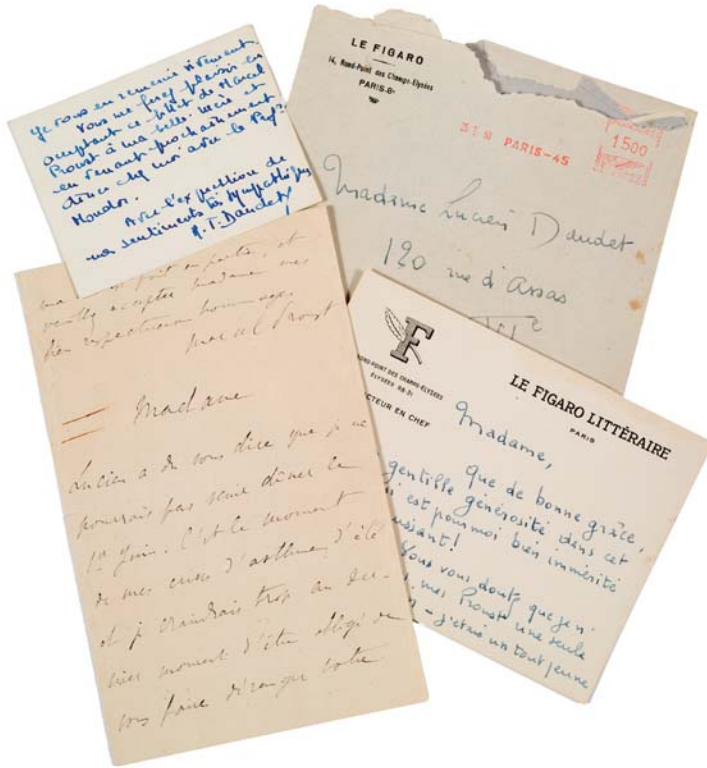 je vous en remercie vivement.
Vous me ferez plaisir en
acceptant ce billet de Marcel
Proust à ma belle-mère et
en venant prochainement
dîner chez moi avec le Prof.
Mondor.
Avec l'expression de
mes sentiments très sympathiques
M.T. Daudet
LE FIGARO
14, Rond-Point des Champs-Elysées
PARIS-8e
PARIS-45
1500
Madame Lucien Daudet
120 rue d'Assas
fait en partie, et
veuillez accepter madame mes
bien respectueux hommages
Marcel Proust
Madame
Lucien a dû vous dire que je ne
pourrais pas venir dîner le
1er Juin. C'est le moment
de mes crises d'asthme d'été
et je craindrais trop au der-
nier moment d'être obligé de
vous faire déranger votre
F
ROND-POINT DES CHAMPS-ELYSÉES
ÉLYSÉES
CTEUR EN CHEF
LE FIGARO LITTÉRAIRE
PARIS
Madame,
que de bonne grâce,
gentille générosité dans cet
i est pour moi bien immérité
uissant!
Vous vous doutez que j'en
mes Proust une seule
– j'étais un tout jeune